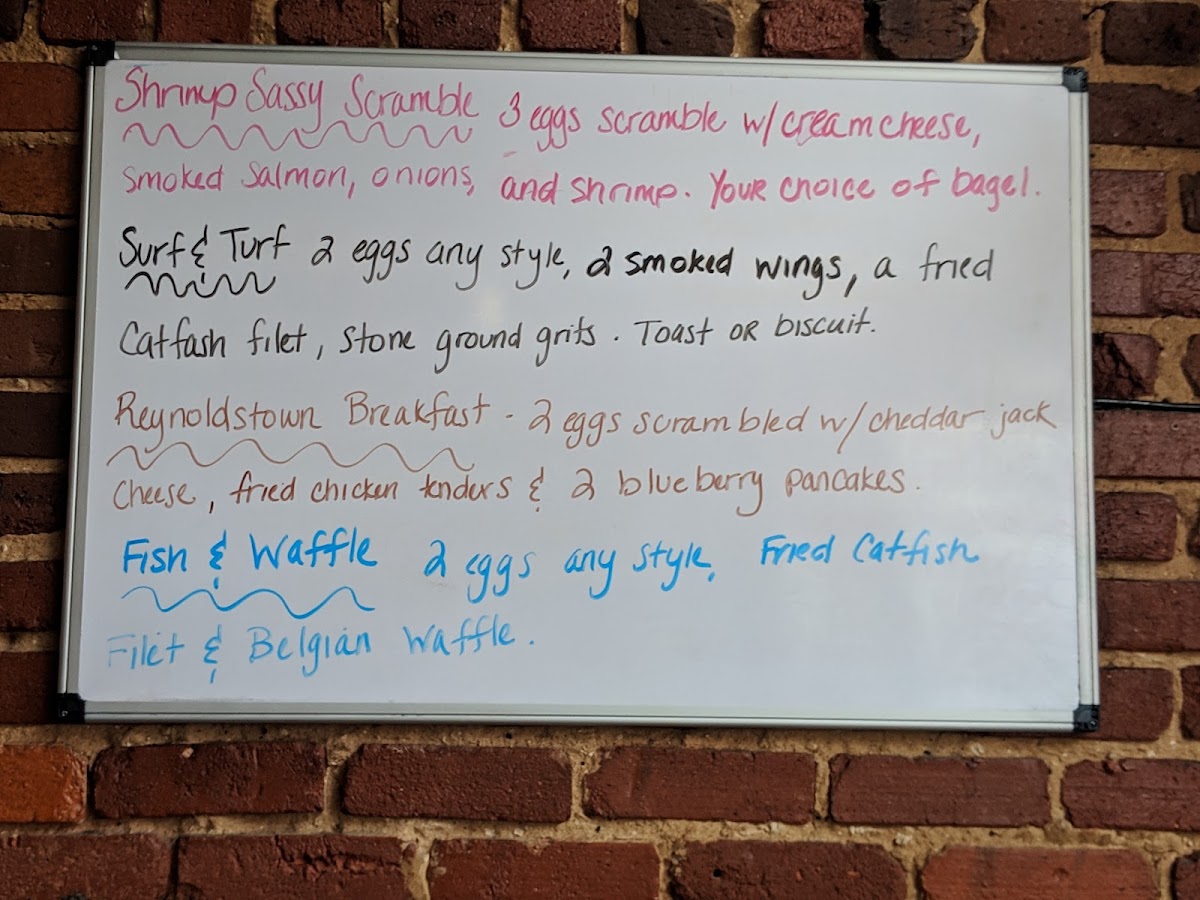 Shrimp Sassy Scramble 3 eggs scramble w/ cream cheese,
smoked salmon, onions, and shrimp. Your choice of bagel.
Surf & Turf 2 eggs any style, 2 smoked wings, a fried
Catfash filet, stone ground grits. Toast or biscuit.
Reynoldstown Breakfast - 2 eggs scrambled w/ cheddar jack
cheese, fried chicken tenders & 2 blueberry pancakes.
Fish & Waffle 2 eggs any style, Fried Catfish
Filet & Belgian Waffle.